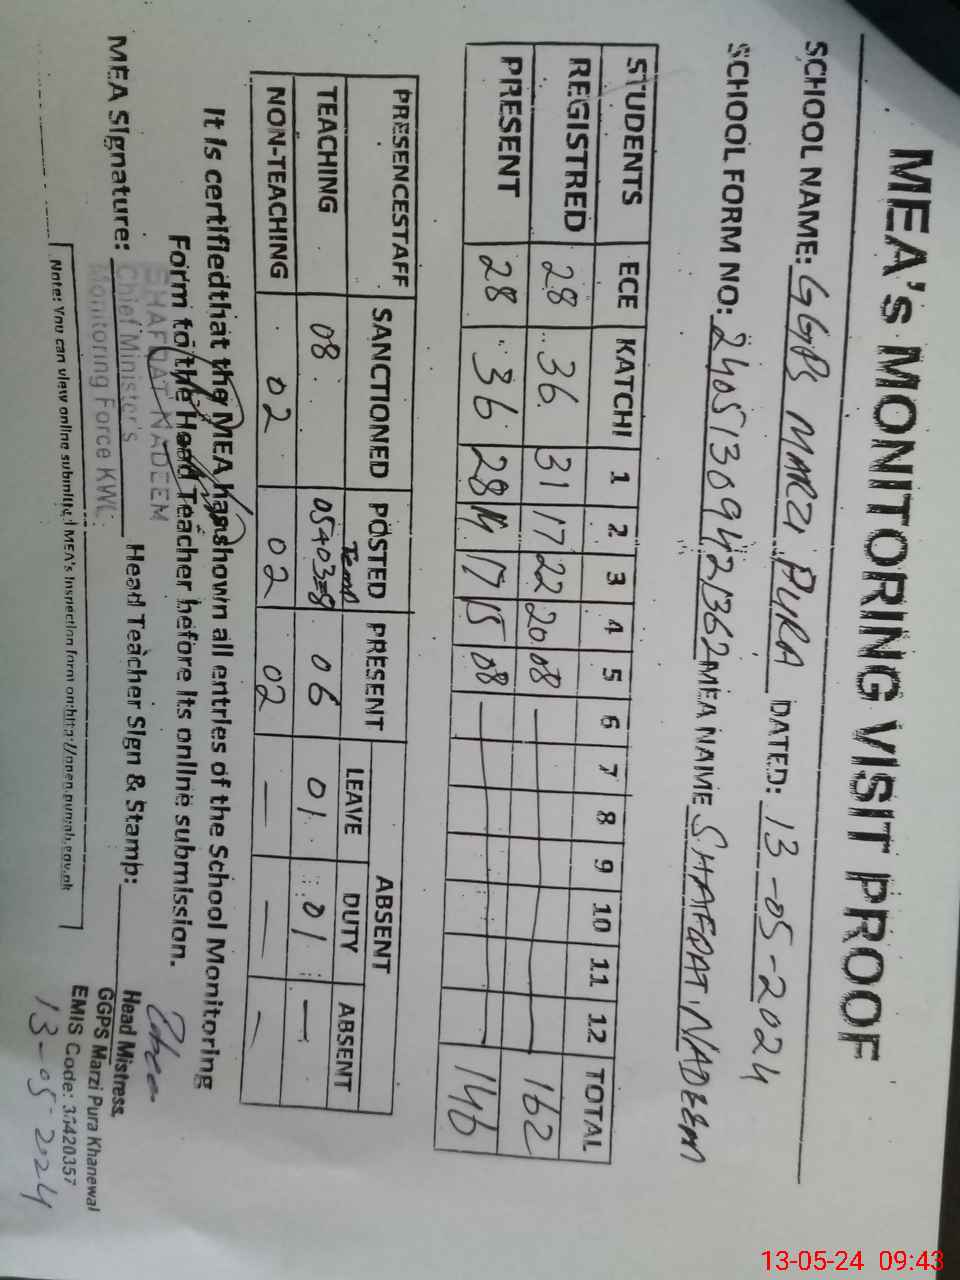 MEA's MONITORING VISIT PROOF
SCHOOL NAME: GGPS MARZI PURA DATED: 13-05-2024
SCHOOL FORM NO: 24051309421362 MEA NAME SHAFQAT NADEEM
STUDENTS ECE KATCHI 1 2 3 4 5 6 7 8 9 10 11 12 TOTAL
REGISTRED 28 36 31 17 22 20 08 162
PRESENT 28 36 28 14 17 15 08 146
PRESENCESTAFF SANCTIONED POSTED PRESENT ABSENT
LEAVE DUTY ABSENT
TEACHING 08 05+03=8 06 01 01 —
NON-TEACHING 02 02 02 — — —
It is certifiedthat the MEA has shown all entries of the School Monitoring
Form to the Head Teacher before its online submission.
MEA Signature: Head Teacher Sign & Stamp:
SHAFQAT NADEEM
Chief Minister's
Monitoring Force KWL.
Head Mistress,
GGPS Marzi Pura Khanewal
EMIS Code: 36420357
13-05-2024
Note: You can view online submitted MEA's Inspection form on:http://open.punjab.gov.pk
13-05-24 09:43